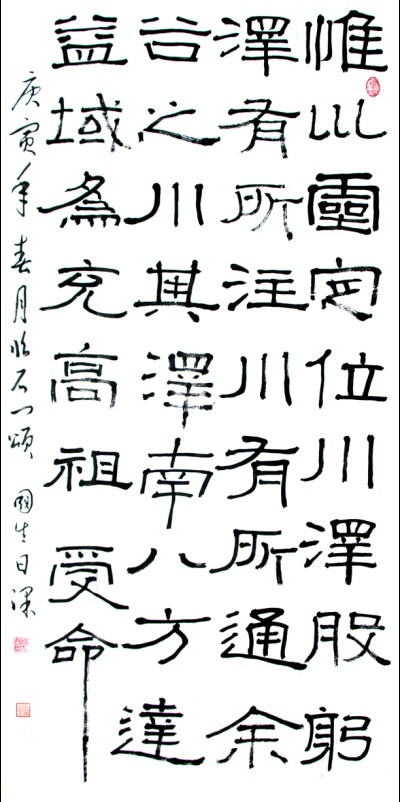 惟巛靈定位川澤股躬
澤有所注川有所通余
谷之川其澤南八方達
益域為充高祖受命
庚寅年春月临石门頌 國生日课